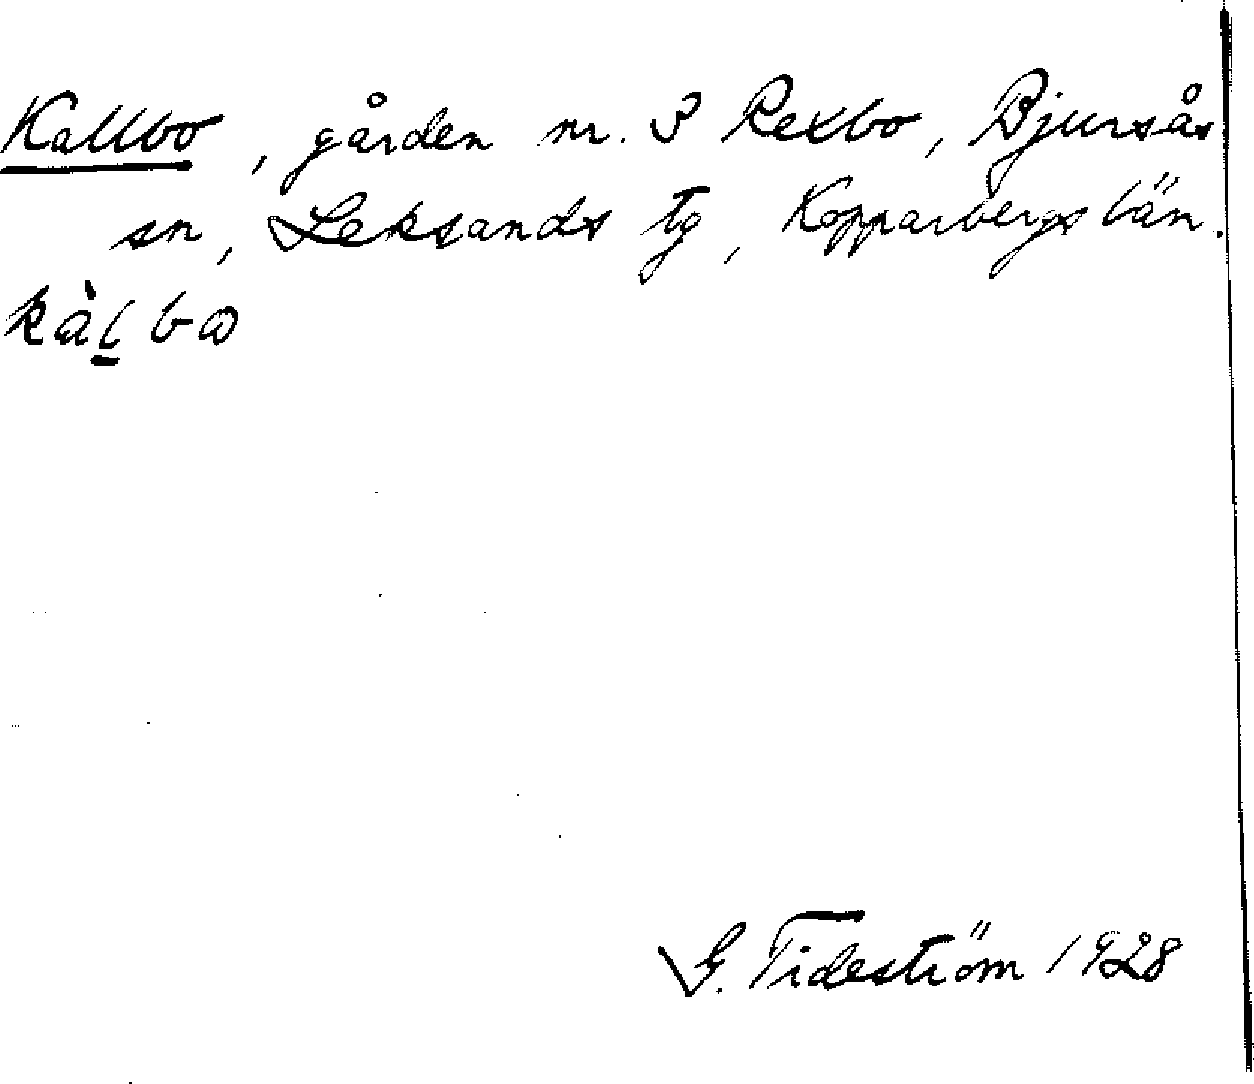 Kallbo, gården nr. 3 Rexbo, Bjursås
sn, Leksands tg, Kopparbergs län.
kàl̲bω
G. Tideström 1928